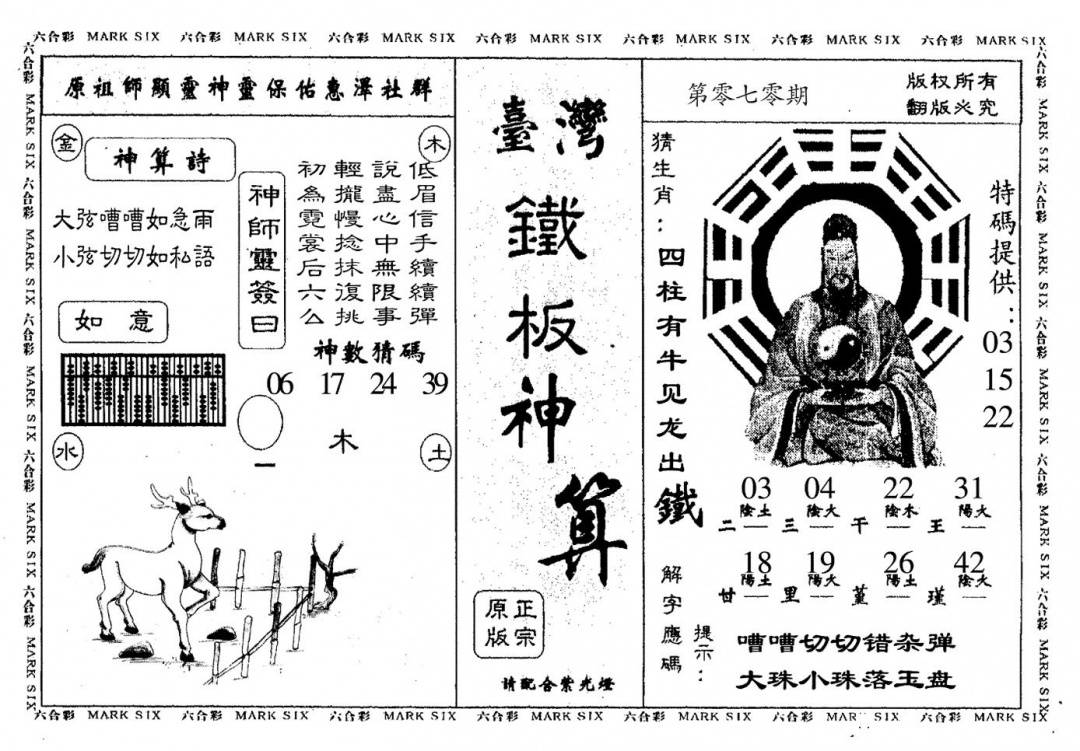 六合彩 MARK SIX 六合彩 MARK SIX 六合彩 MARK SIX 六合彩 MARK SIX 六合彩 MARK SIX 六合彩 MARK SIX 六合彩 MARK SIX
六合彩 MARK SIX 六合彩 MARK SIX 六合彩 MARK SIX 六合彩 MARK SIX 六合彩 MARK SIX
原祖師顯靈神靈保佑惠澤社群
金
木
神算詩
大弦嘈嘈如急雨
小弦切切如私語
如意
神師靈簽曰
低眉信手續續彈
說盡心中無限事
輕攏慢捻抹復挑
初為霓裳后六公
神數猜碼
06 17 24 39
木
水
土
臺灣
鐵板神算
正宗
原版
請配合紫光燈
第零七零期
版权所有
翻版必究
猜生肖：四柱有牛见龙出鐵
特碼提供：
03
15
22
03 04 22 31
陰土 陰火 陰水 陽火
二 三 干 王
18 19 26 42
陽土 陽火 陽土 陰火
甘 里 堇 瑾
解字應碼
提示：
嘈嘈切切错杂弹
大珠小珠落玉盘
六合彩 MARK SIX 六合彩 MARK SIX 六合彩 MARK SIX 六合彩 MARK SIX 六合彩 MARK SIX
六合彩 MARK SIX 六合彩 MARK SIX 六合彩 MARK SIX 六合彩 MARK SIX 六合彩 MARK SIX 六合彩 MARK SIX 六合彩 MARK SIX